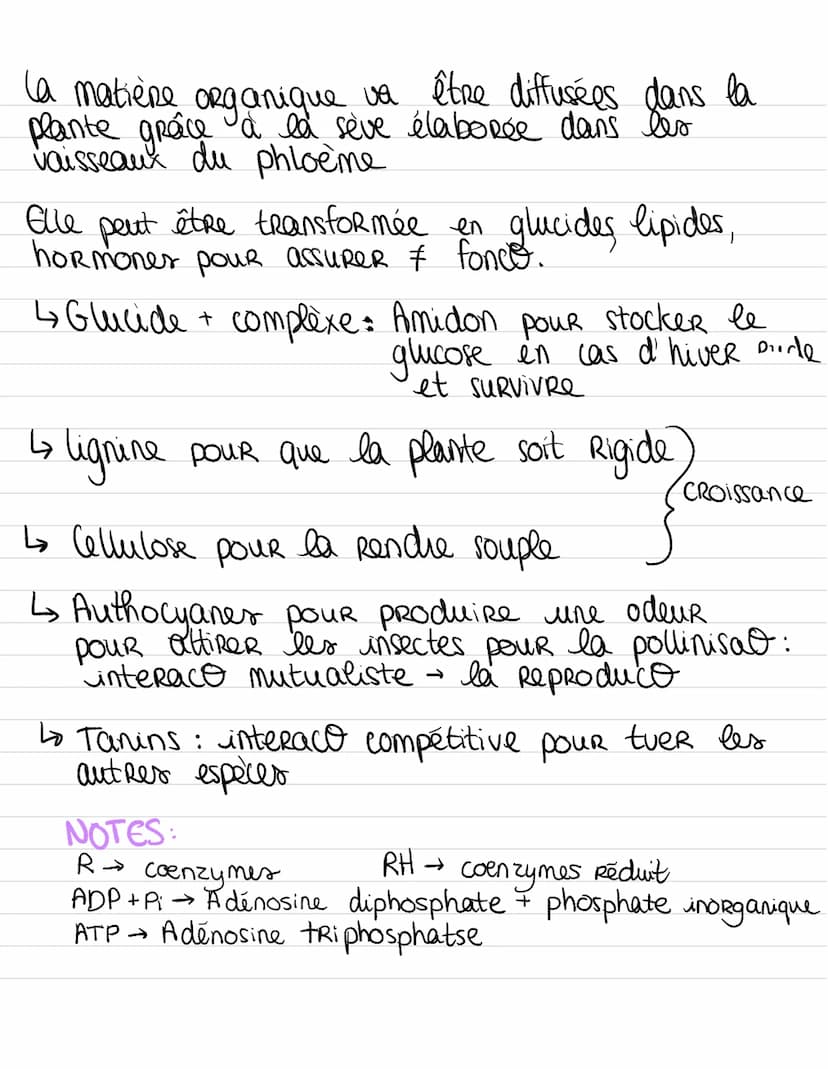 La matière organique va être diffusées dans la
plante grâce à la sève élaborée dans les
vaisseaux du phloème
Elle peut être transformée en glucides, lipides,
hormones pour assurer ≠ foncO.
↳ Glucide + complèxe : Amidon pour stocker le
glucose en cas d'hiver
et survivre
↳ lignine pour que la plante soit Rigide
croissance
↳ Cellulose pour la rendre souple
↳ Authocyanes pour produire une odeur
pour attirer les insectes pour la pollinisaO :
interacO mutualiste → la reproducO
↳ Tanins : interacO compétitive pour tuer les
autres espèces
NOTES:
R → coenzymes RH → coenzymes réduit
ADP + Pi → Adénosine diphosphate + phosphate inorganique
ATP → Adénosine triphosphatse